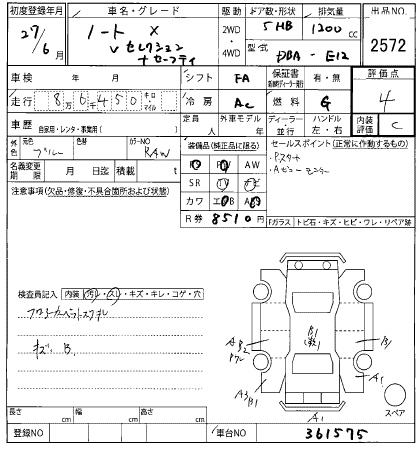 初度登録年月 車名・グレード 駆動 ドア数・形状 排気量 出品NO
27/6月 ノート X 2WD・4WD 5HB 1200cc 2572
V セレクション
+セーフティ 型式 DBA-E12
車検 年 月 シフト FA 保証書 有・無 評価点
走行 8万6千450キロ・マイル 冷房 AC 燃料 G 4
車歴 自家用・レンタ・事業用( ) 定員 人 外車モデル 年 ディーラー・並行 ハンドル 左・右 内装評価 C
外色 元色 ブルー 色替 カラーNO RAW 装備品(純正品に限る) セールスポイント(正常に作動するもの)
名義変更期限 月 日迄 積載 t PS PW AW ・Pスタート
SR TV ナビ ・Aビューモニター
注意事項(欠品・修復・不具合箇所および状態) カワ エアB ABS
R券 8510円
Fガラス トビ石・キズ・ヒビ・ワレ・リペア跡
検査員記入 内装 汚レ・スレ・キズ・キレ・コゲ・穴
フロアカーペットスリキレ
キズ、B.
B1 (数)
A B2
Pワレ
B1
A3 B1
A1
A1
スペア
長さ cm 幅 cm 高さ cm
登録NO 車台NO 361575